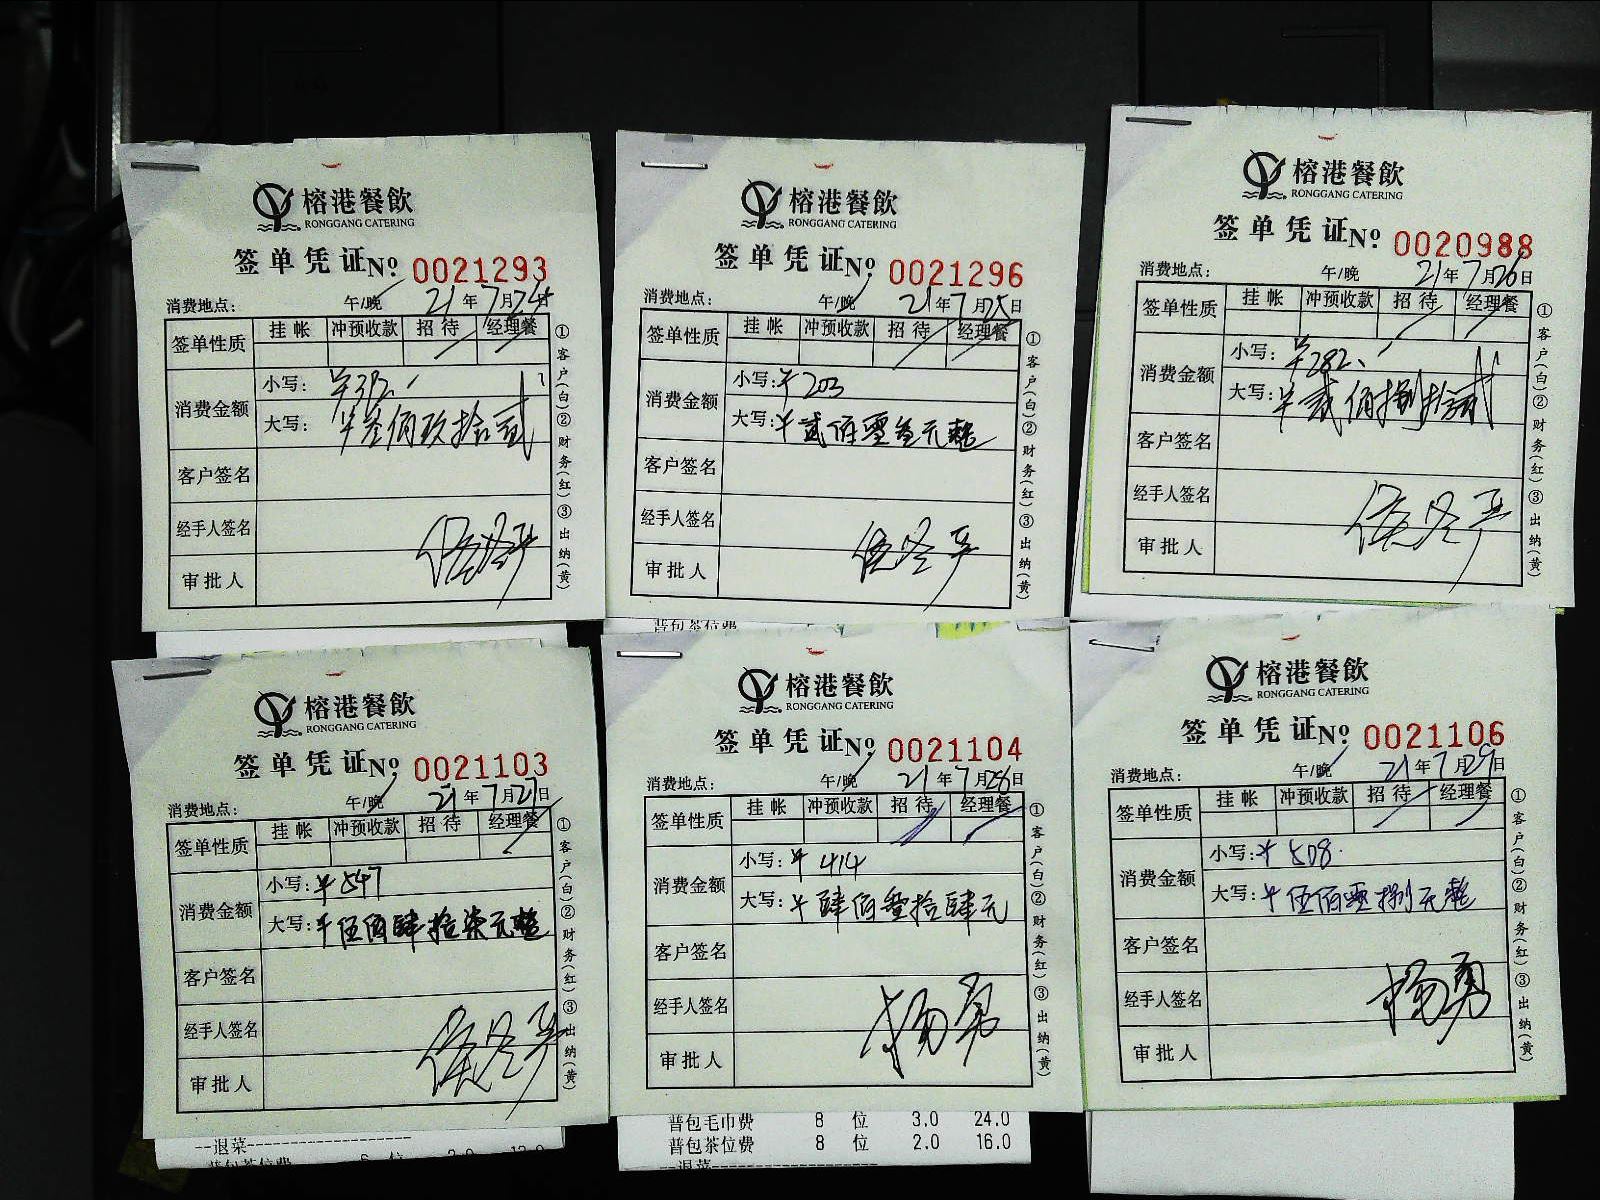 榕港餐飲
RONGGANG CATERING
签单凭证No. 0021293
消费地点: 午/晚 21年7月24日
签单性质 挂帐 冲预收款 招待 经理餐
消费金额
小写: ¥392
大写: ¥叁佰玖拾贰
客户签名
经手人签名
审批人
①客户(白)②财务(红)③出纳(黄)
榕港餐飲
RONGGANG CATERING
签单凭证No. 0021296
消费地点: 午/晚 21年7月25日
签单性质 挂帐 冲预收款 招待 经理餐
消费金额
小写: ¥203
大写: ¥贰佰零叁元整
客户签名
经手人签名
审批人
①客户(白)②财务(红)③出纳(黄)
普包茶位费
榕港餐飲
RONGGANG CATERING
签单凭证No. 0020988
消费地点: 午/晚 21年7月26日
签单性质 挂帐 冲预收款 招待 经理餐
消费金额
小写: ¥282
大写: ¥贰佰捌拾贰
客户签名
经手人签名
审批人
①客户(白)②财务(红)③出纳(黄)
榕港餐飲
RONGGANG CATERING
签单凭证No. 0021103
消费地点: 午/晚 21年7月27日
签单性质 挂帐 冲预收款 招待 经理餐
消费金额
小写: ¥547
大写: ¥伍佰肆拾柒元整
客户签名
经手人签名
审批人
①客户(白)②财务(红)③出纳(黄)
--退菜--------------------
普包茶位费 6 位 2.0 12.0
榕港餐飲
RONGGANG CATERING
签单凭证No. 0021104
消费地点: 午/晚 21年7月28日
签单性质 挂帐 冲预收款 招待 经理餐
消费金额
小写: ¥414
大写: ¥肆佰壹拾肆元
客户签名
经手人签名 杨勇
审批人
①客户(白)②财务(红)③出纳(黄)
普包毛巾费 8 位 3.0 24.0
普包茶位费 8 位 2.0 16.0
--退菜--------------------
榕港餐飲
RONGGANG CATERING
签单凭证No. 0021106
消费地点: 午/晚 21年7月29日
签单性质 挂帐 冲预收款 招待 经理餐
消费金额
小写: ¥508
大写: ¥伍佰零捌元整
客户签名
经手人签名 杨勇
审批人
①客户(白)②财务(红)③出纳(黄)